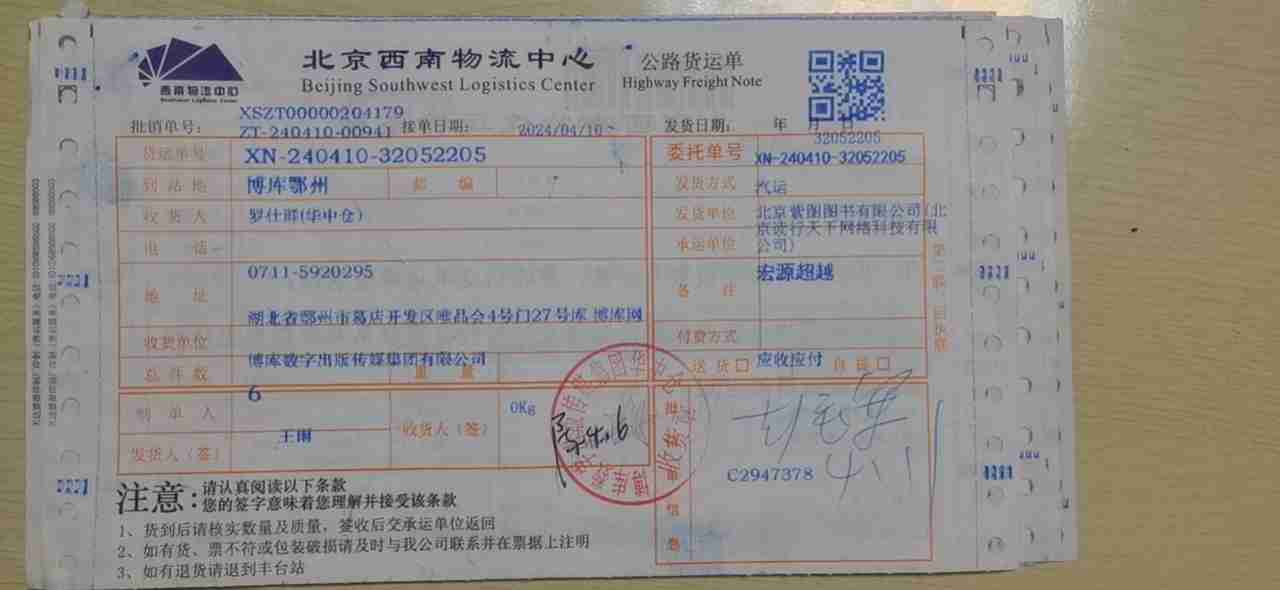 北京西南物流中心
Beijing Southwest Logistics Center
公路货运单
Highway Freight Note
西南物流中心
批销单号: XSZT00000204179
ZT-240410-00941 接单日期: 2024/04/10 发货日期: 年 月 日
32052205
货运单号 XN-240410-32052205 委托单号 XN-240410-32052205
到站地 博库鄂州 邮编 发货方式 汽运
收货人 罗仕胜(华中仓) 发货单位 北京紫图图书有限公司(北京读行天下网络科技有限公司)
电话 承运单位
0711-5920295 宏源超越
地址 备注
湖北省鄂州市葛店开发区唯品会4号门27号库 博库网
收货单位 付款方式
博库数字出版传媒集团有限公司
总件数 重量 送货 应收应付 自提
6 0Kg
制单人 收货人(签) 批单信息
王雨
发货人(签)
C2947378
注意: 请认真阅读以下条款
您的签字意味着您理解并接受该条款
1、货到后请核实数量及质量,签收后交承运单位返回
2、如有货、票不符或包装破损请及时与我公司联系并在票据上注明
3、如有退货请退到丰台站